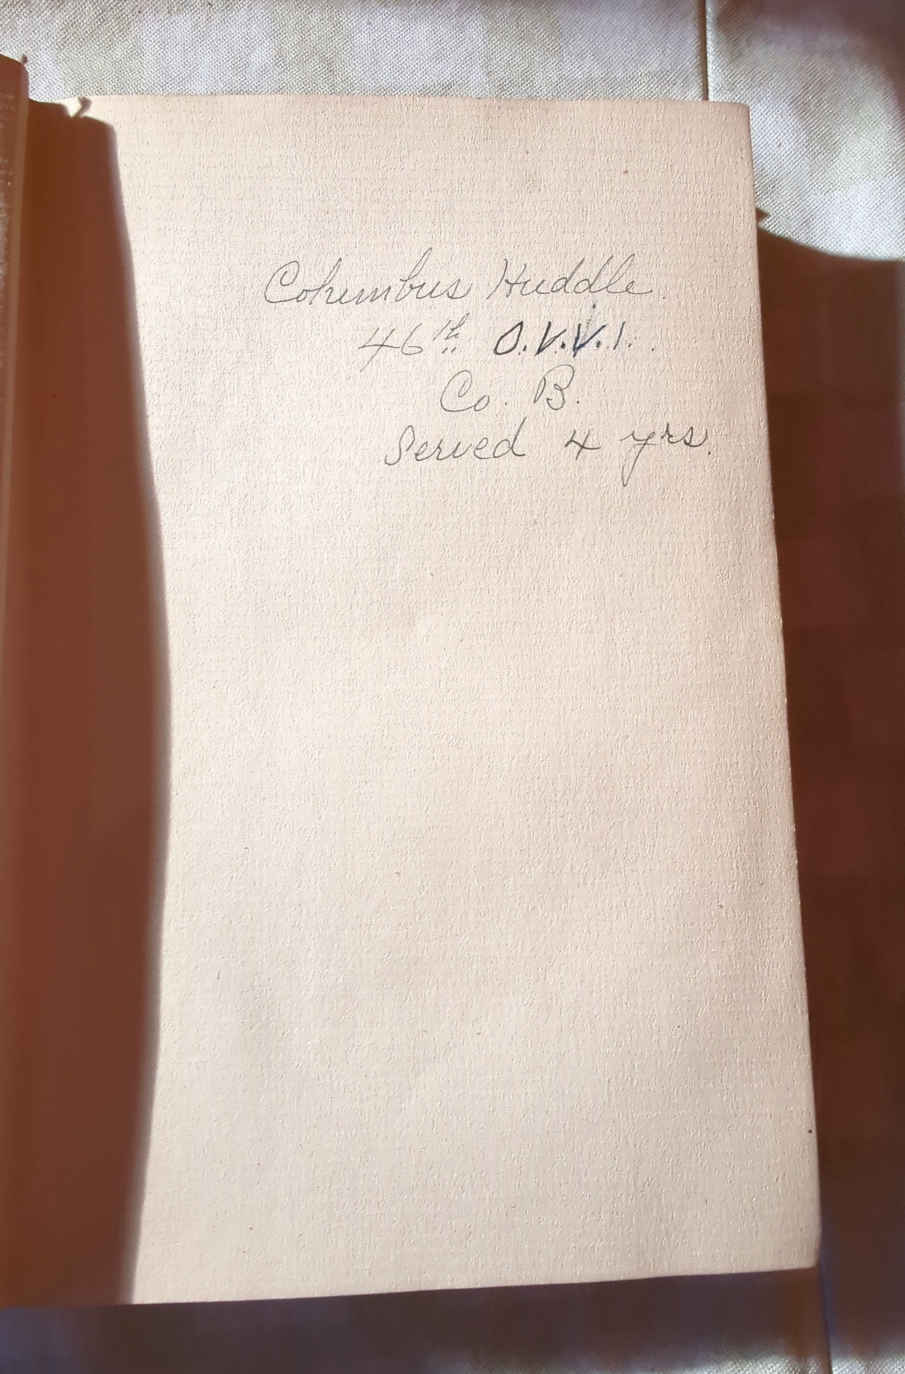 Columbus Huddle.
46th O.V.V.I.
Co. B.
Served 4 yrs.